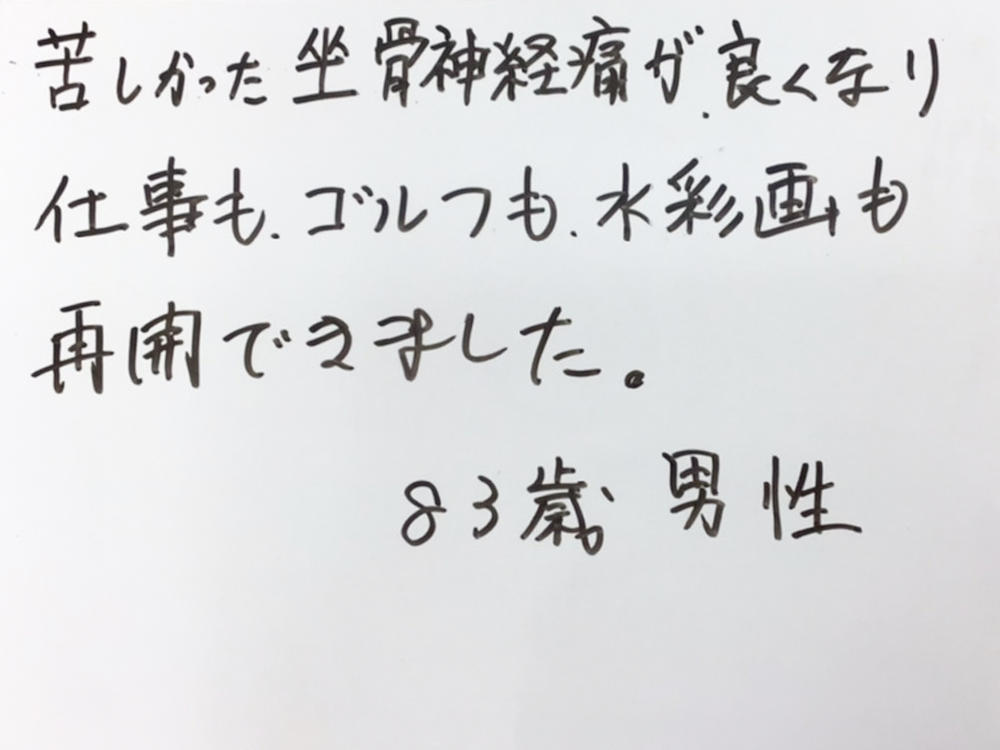 苦しかった坐骨神経痛が良くなり
仕事も、ゴルフも、水彩画も
再開できました。
83歳 男性